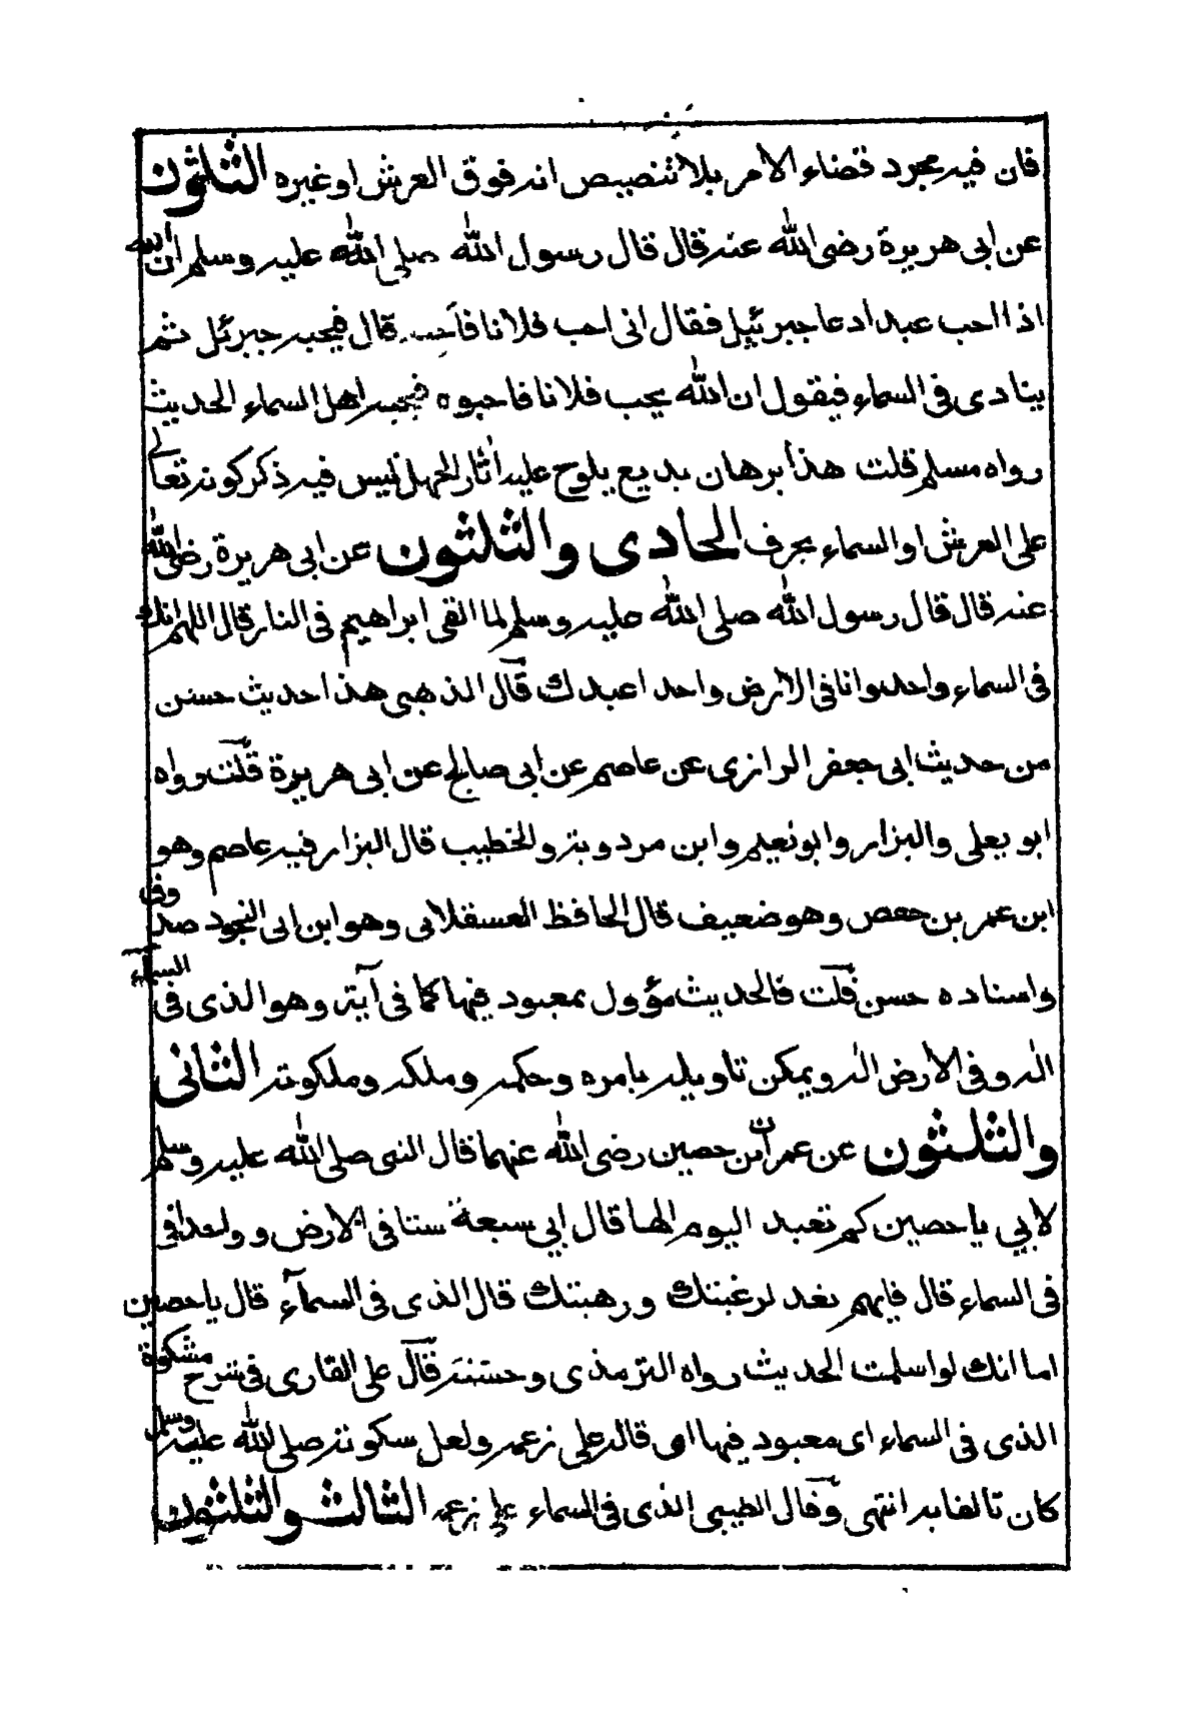 فان فيه مجرد قضاء الامر بلا تنصيص انه فوق العرش او غيره الثلثون
عن ابى هريرة رضى الله عنه قال قال رسول الله صلى الله عليه وسلم ان الله
اذا احب عبدا دعا جبرئيل فقال انى احب فلانا فاحبه قال فيحبه جبرئل ثم
ينادى فى السماء فيقول ان الله يحب فلانا فاحبوه فيحبه اهل السماء الحديث
رواه مسلم قلت هذا برهان بديع يلوح عليه اثار الجهل ليس فيه ذكر كونه تعالى
على العرش او السماء بحرف الحادى والثلثون عن ابى هريرة رضى الله
عنه قال قال رسول الله صلى الله عليه وسلم لما القى ابراهيم فى النار قال اللهم انك
فى السماء واحد وانا فى الارض واحد اعبدك قال الذهبى هذا حديث حسن
من حديث ابى جعفر الرازى عن عاصم عن ابى صالح عن ابى هريرة قلت رواه
ابو يعلى والبزار وابو نعيم وابن مردويه والخطيب قال البزار فيه عاصم وهو
ابن عمر بن حفص وهو ضعيف قال الحافظ العسقلانى وهو ابن ابى النجود صدوق
واسناده حسن قلت فالحديث مؤول بمعبود فيها كما فى آية وهو الذى فى السمآء
اله وفى الارض اله ويمكن تاويله بامره وحكمه وملكه وملكوته الثانى
والثلثون عن عمران بن حصين رضى الله عنهما قال النبى صلى الله عليه وسلم
لابي يا حصين كم تعبد اليوم الها قال ابي سبعة ستا فى الارض وواحدا فى
فى السماء قال فايهم تعد لرغبتك ورهبتك قال الذى فى السمآء قال يا حصين
اما انك لو اسلمت الحديث رواه الترمذى وحسنه قال على القارى فى شرح مشكوة
الذى فى السماء اى معبود فيها اى قاله على زعمه ولعل سكوته صلى الله عليه وسلم
كان تالفا به انتهى وقال الطيبى الذى فى السماء على زعمه الثالث والثلثون